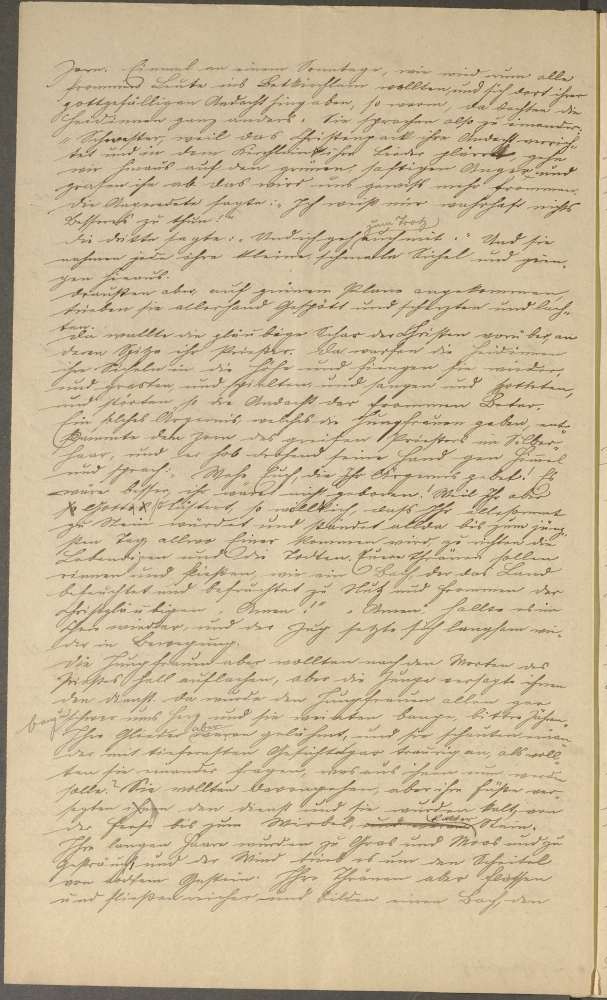 Zorn. Einmal an einem Sonntage, wie wird nun alle
frommen Leute ins Betkirchlein wallten, und sich dort ihrer
gottgefälligen Andacht hingaben, so waren, da dachten die
Heidinnen ganz anders. Sie sprachen also zu einander:
„Schwester, weil das Christenpack ihre Andacht verrich-
tet und in dem Kirchlein ihre Lieder plärrt, gehn
wir hinaus auf den grünen, saftigen Anger und
grasen ihn ab das wird uns gewiß mehr frommen.
die Angeredete sagte: „Ich weiß mir wahrhaft nichts
Besseres zu thun!"
die dritte sagte: „Und ich geh zum Trotz auch mit." Und sie
nahmen jede ihre kleine, schmale Sichel und gien-
gen hinaus.
Draußen aber auf grünem Plane angekommen
trieben sie allerhand Gespött und scherzten und lach-
ten.
Da wallte die gläubige Schar der Christen vorüber, an
deren Spitze ihr Priester. Da warfen die Heidinnen
ihre Sicheln in die Höhe und fiengen sie wieder,
und grasten, und spielten und sangen und spotteten,
und störten so die Andacht der frommen Beter.
Ein solches Ärgernis welches die Jungfrauen gaben, ent-
flammte den Zorn des greisen Priesters im Silber-
haar, und er hob drohend seine Hand gen Himmel
und sprach: „Wehe Euch, die Ihr Ärgernis gebet! Es
wäre besser, ihr wäret nicht geboren! Weil Ihr aber
lästert, so will ich, dass Ihr allesammt
zu Stein würdet und standet allda bis zum jüng-
sten Tag, allwo Einer kommen wird, zu richten die
Lebendigen und die Todten. Eure Thränen sollen
rinnen und fließen, wie ein Bach, der das Land
befeuchtet und befruchtet zu Nutz und Frommen der
Christgläubigen, Amen!" „Amen", hallte es im
Chor wieder, und der Zug setzte sich langsam wie-
der in Bewegung.
Die Jungfrauen aber wollten nach den Worten des
Priesters hell auflachen, aber die Zunge versagte ihnen
den Dienst. Da wurde den Jungfrauen allen gar
bang schwer ums Herz und sie weinten bange, bittre Zähren.
Ihre Glieder aber waren gelähmt, und sie schauten einan-
der mit tiefernsten Gesichtszügen traurig an, als woll-
ten sie einander fragen, was aus ihnen nun werden
solle? Sie wollten davongehen, aber ihre Füße ver-
sagten ihnen den Dienst und sie wurden kalt von
der Ferse bis zum Wirbel, kalter Stein.
Ihre langen Haare wurden zu Gras und Moos und zu
Gesträuch und der Wind trieb es um den Scheitel
von todtem Gestein. Ihre Thränen aber flossen
und fließen nieder und bilden einen Bach, den